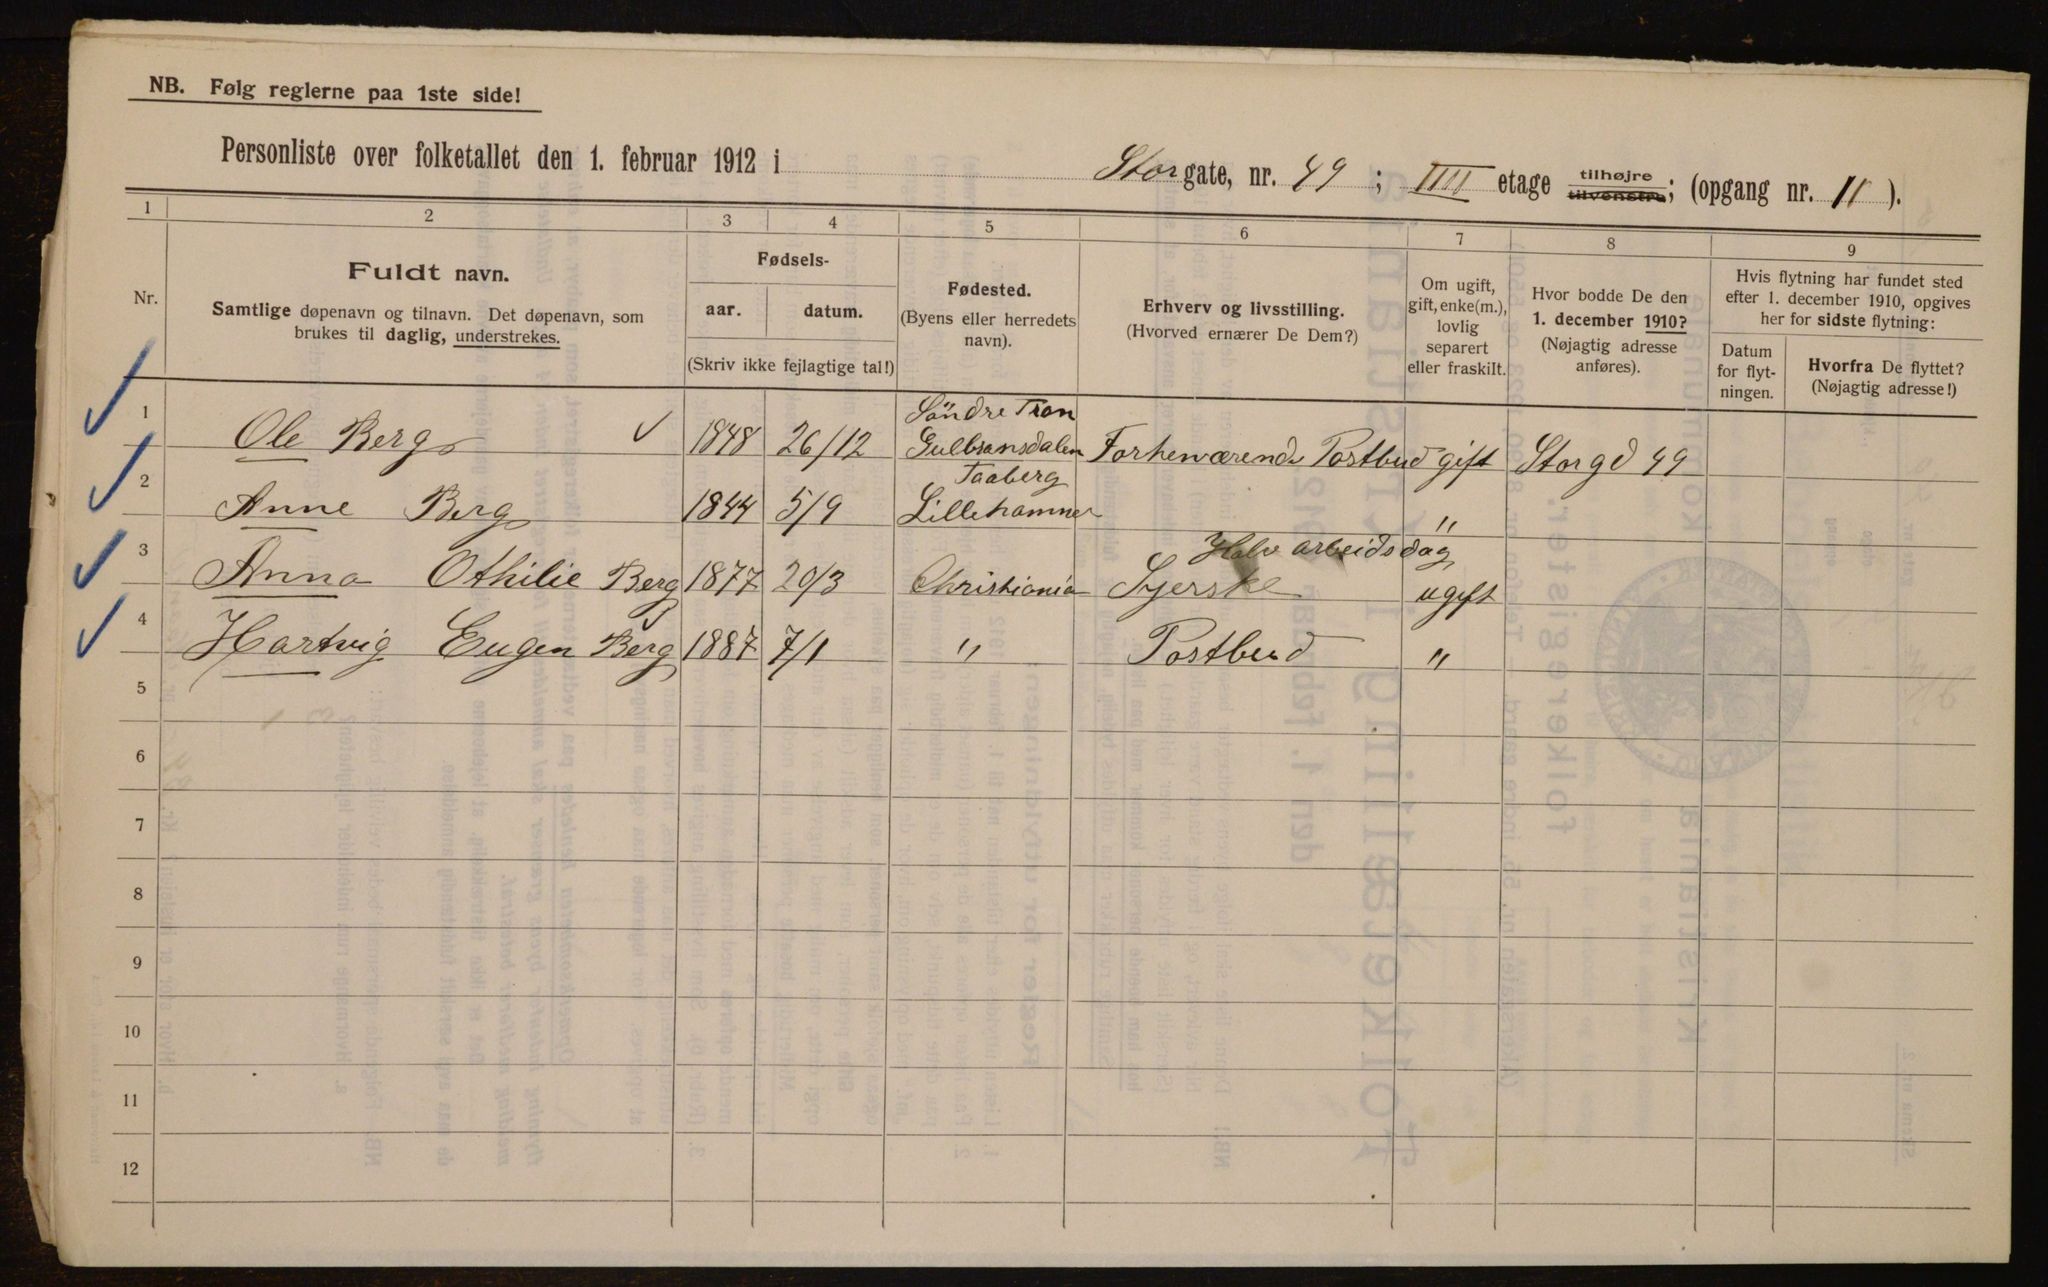 NB. Følg reglerne paa 1ste side!
Personliste over folketallet den 1. februar 1912 i Storgate, nr. 49; IIII etage tilhøjre tilvenstre; (opgang nr. II).
1 2 3 4 5 6 7 8 9
Nr.
Fuldt navn.
Samtlige døpenavn og tilnavn. Det døpenavn, som
brukes til daglig, understrekes.
Fødsels-
aar. datum.
(Skriv ikke fejlagtige tal!)
Fødested.
(Byens eller herredets
navn).
Erhverv og livsstilling.
(Hvorved ernærer De Dem?)
Om ugift,
gift, enke(m.),
lovlig
separert
eller fraskilt.
Hvor bodde De den
1. december 1910?
(Nøjagtig adresse
anføres).
Hvis flytning har fundet sted
efter 1. december 1910, opgives
her for sidste flytning:
Datum
for flyt-
ningen.
Hvorfra De flyttet?
(Nøjagtig adresse!)
Söndre Fron
1 Ole Berg 1848 26/12 Gulbransdalen Forhenværende Postbud gift Storgd 49
Faaberg
2 Anne Berg 1844 5/9 Lillehammer "
Halv arbeidsdag
3 Anna Othilie Berg 1877 20/3 Christiania Syerske ugift
4 Hartvig Eugen Berg 1887 7/1 " Postbud "
5
6
7
8
9
10
11
12